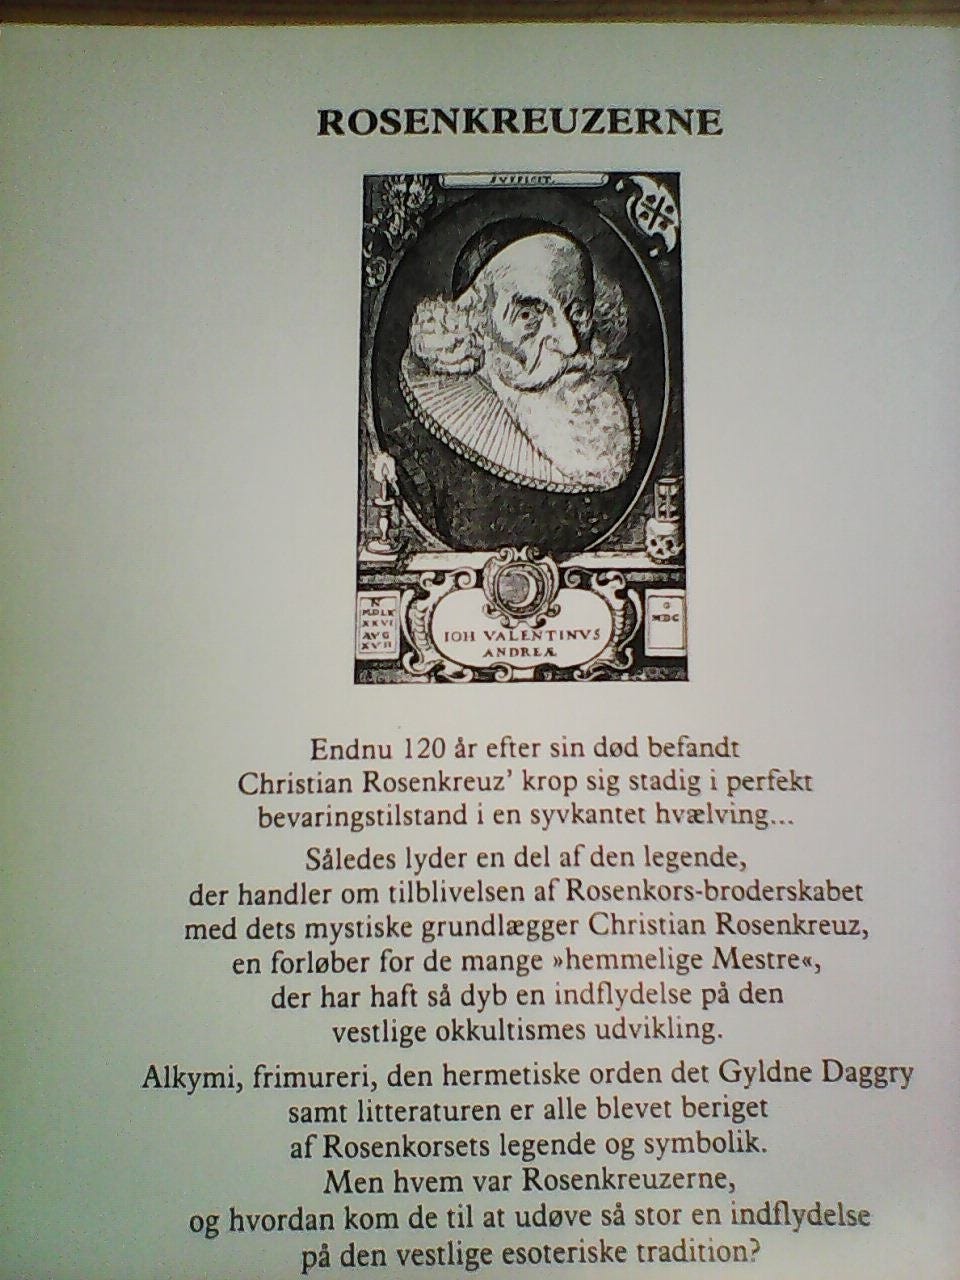 ROSENKREUZERNE
SVFFICIT.
N
MDLX
XXVI
AVG
XVII
G
MDC
IOH VALENTINVS
ANDREÆ
Endnu 120 år efter sin død befandt
Christian Rosenkreuz’ krop sig stadig i perfekt
bevaringstilstand i en syvkantet hvælving...
Således lyder en del af den legende,
der handler om tilblivelsen af Rosenkors-broderskabet
med dets mystiske grundlægger Christian Rosenkreuz,
en forløber for de mange »hemmelige Mestre«,
der har haft så dyb en indflydelse på den
vestlige okkultismes udvikling.
Alkymi, frimureri, den hermetiske orden det Gyldne Daggry
samt litteraturen er alle blevet beriget
af Rosenkorsets legende og symbolik.
Men hvem var Rosenkreuzerne,
og hvordan kom de til at udøve så stor en indflydelse
på den vestlige esoteriske tradition?